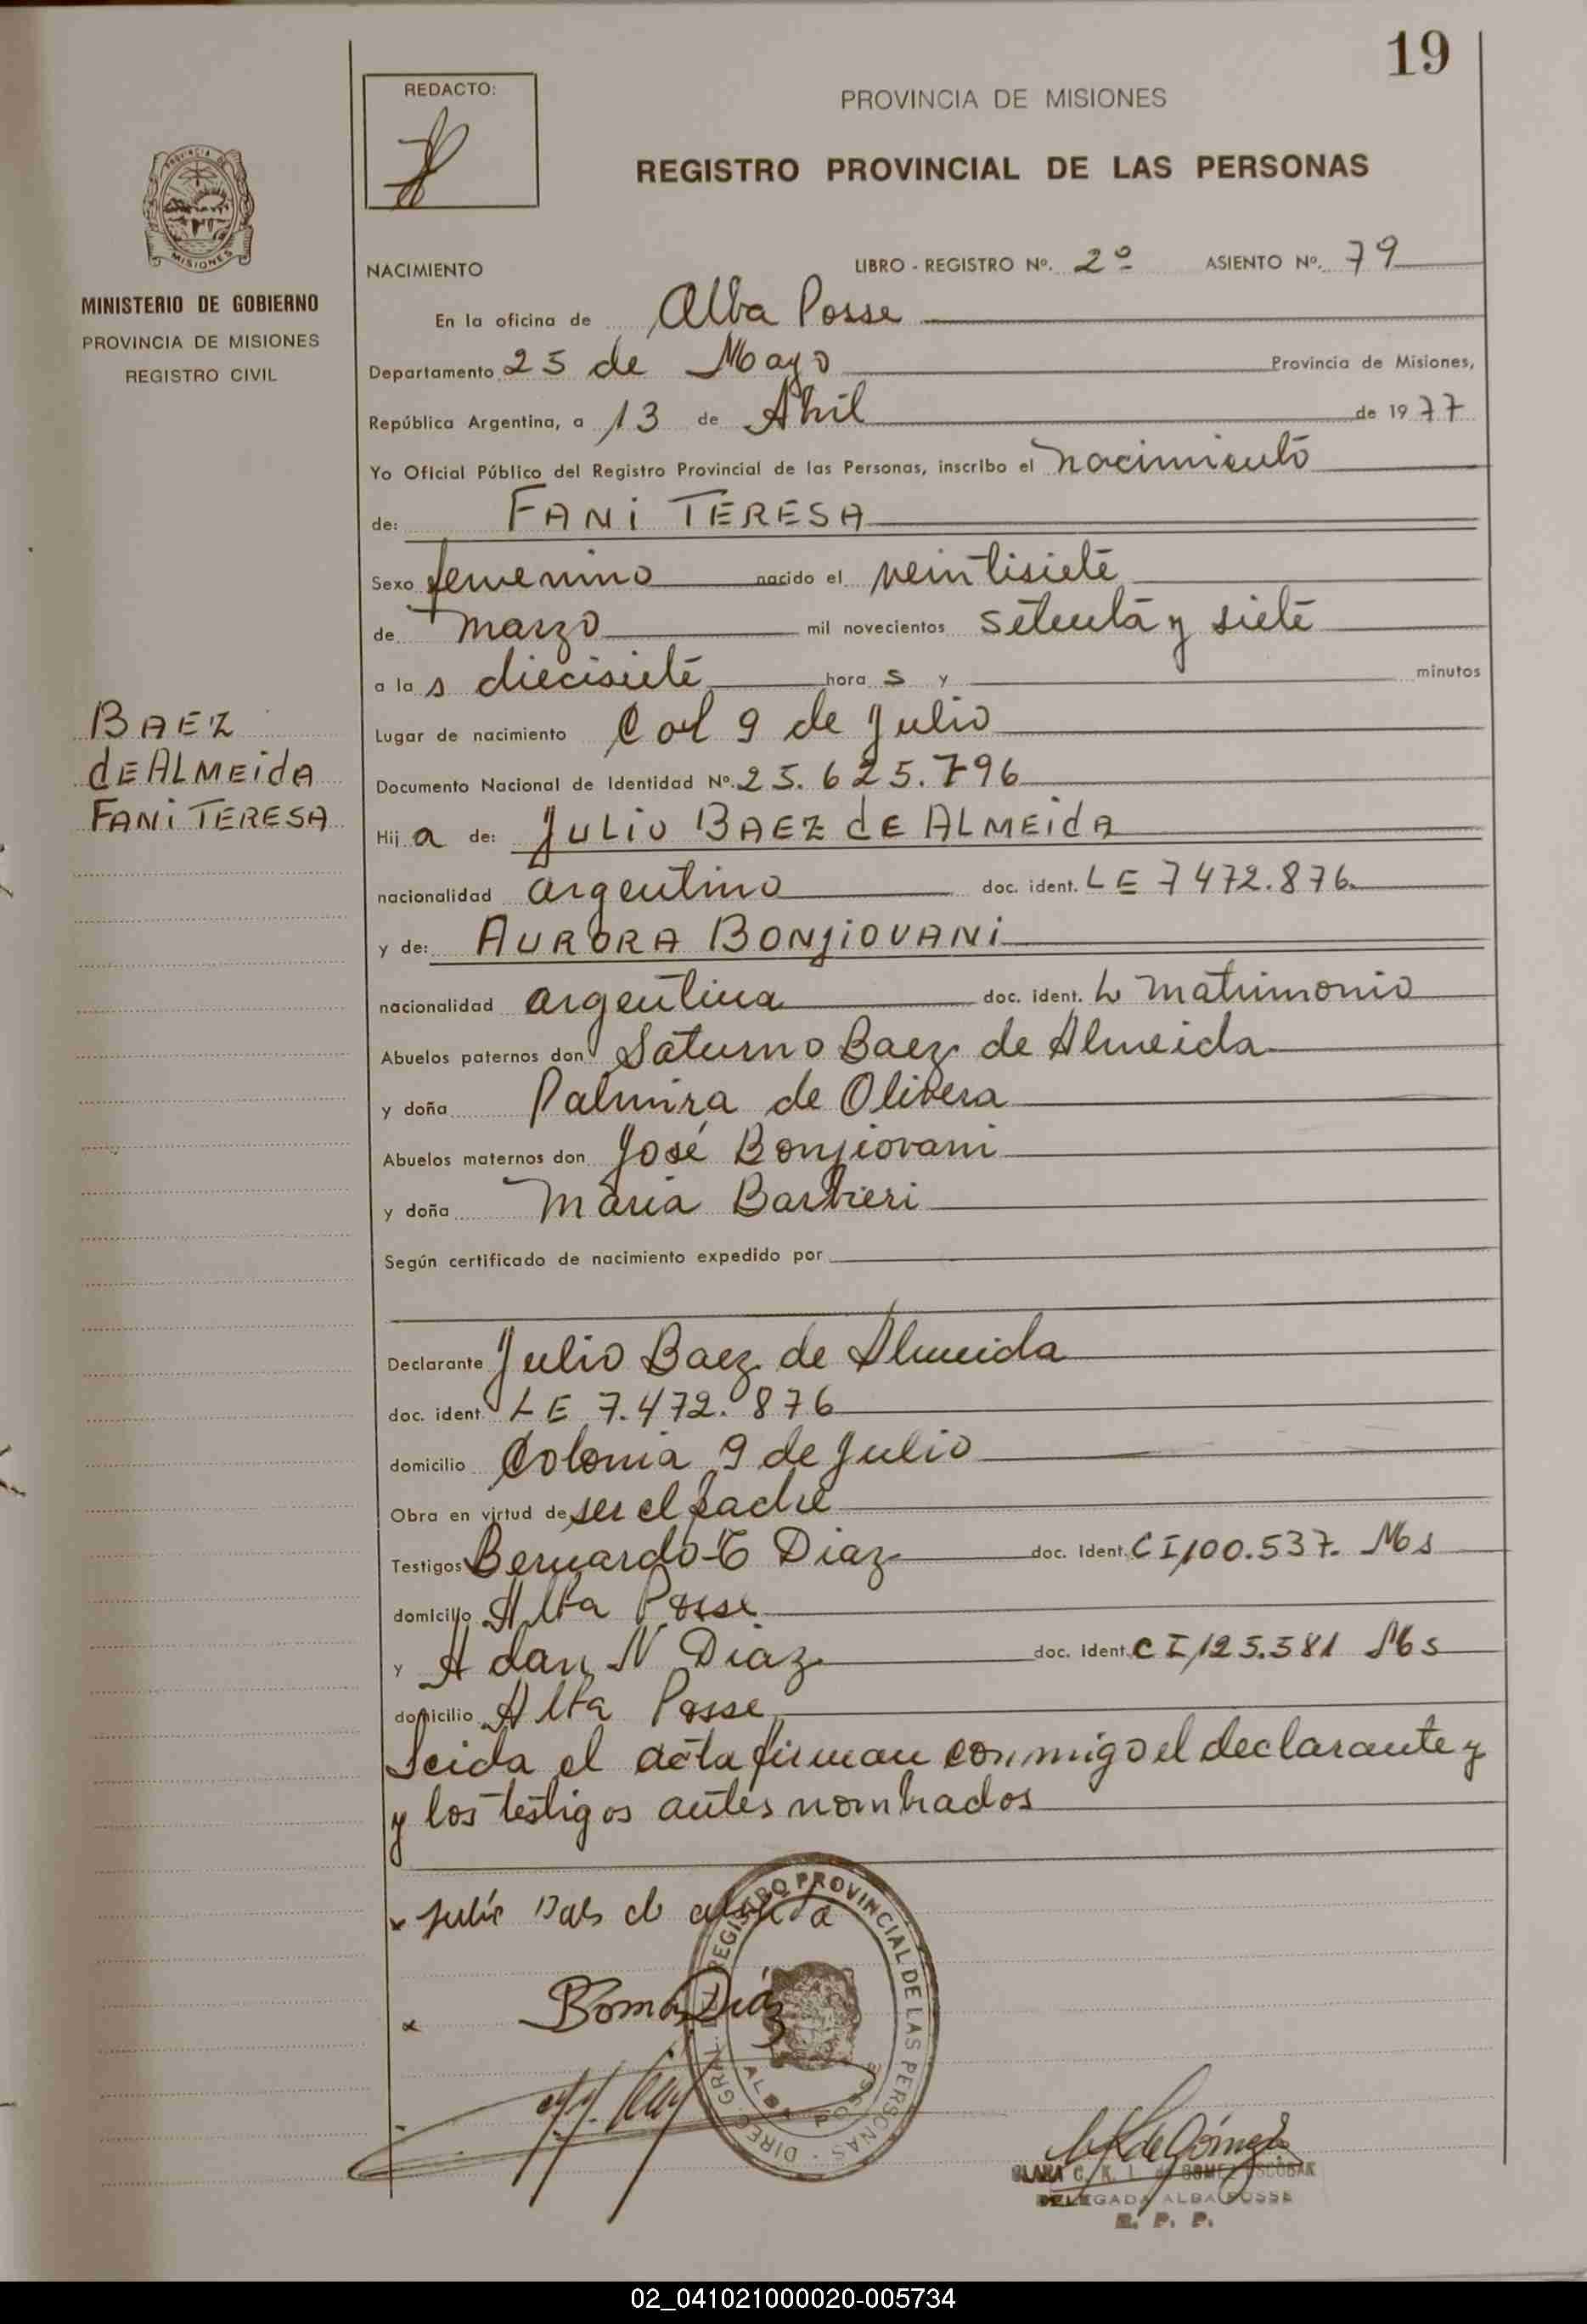 19
REDACTO:
PROVINCIA DE MISIONES
REGISTRO PROVINCIAL DE LAS PERSONAS
PROVINCIA DE
MISIONES
MINISTERIO DE GOBIERNO
PROVINCIA DE MISIONES
REGISTRO CIVIL
NACIMIENTO LIBRO - REGISTRO Nº. 2º ASIENTO Nº. 79
En la oficina de Alba Posse
Departamento 25 de Mayo Provincia de Misiones,
República Argentina, a 13 de Abril de 1977
Yo Oficial Público del Registro Provincial de las Personas, inscribo el nacimiento
de: FANi TERESA
Sexo femenino nacido el veintisiete
de marzo mil novecientos setenta y siete
a las diecisiete horas y minutos
Lugar de nacimiento Col 9 de Julio
BAEZ
dE ALMEidA
FANi TERESA
Documento Nacional de Identidad Nº. 25.625.796
Hija de: JULIO BAEZ dE ALMEidA
nacionalidad argentino doc. ident. LE 7472.876
y de: AURORA BONJiOVANi
nacionalidad argentina doc. ident. L matrimonio
Abuelos paternos don Saturno Baez de Almeida
y doña Palmira de Olivera
Abuelos maternos don José Bonjiovani
y doña Maria Barbieri
Según certificado de nacimiento expedido por
Declarante Julio Baez de Almeida
doc. ident. LE 7.472.876
domicilio Colonia 9 de Julio
Obra en virtud de ser el padre
Testigos Bernardo Diaz doc. Ident. CI 100.537. Ms
domicilio Alba Posse
y Adan N Diaz doc. ident. CI 125.381 Ms
domicilio Alba Posse
Leida el acta firman conmigo el declarante y
y los testigos antes nombrados
x Julio de
x Diaz
DIREC. GRAL. REGISTRO PROVINCIAL DE LAS PERSONAS
ALBA POSSE
de Gómez
CLARA C. K. L. de GOMEZ ESCOBAR
DELEGADA ALBA POSSE
R. P. P.
02_041021000020-005734